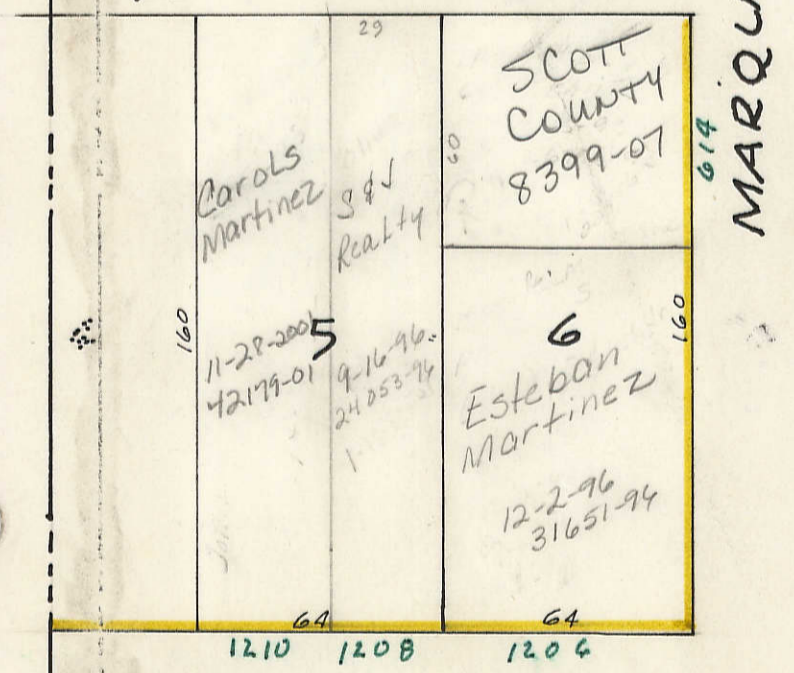 29
SCOTT
COUNTY
8399-07
60
614
MARQU
Carols
Martinez
S & J
Realty
160
5
6
160
11-28-2001
42179-01
9-16-96
24053-96
Esteban
Martinez
12-2-96
31651-96
64
64
1210
1208
1206